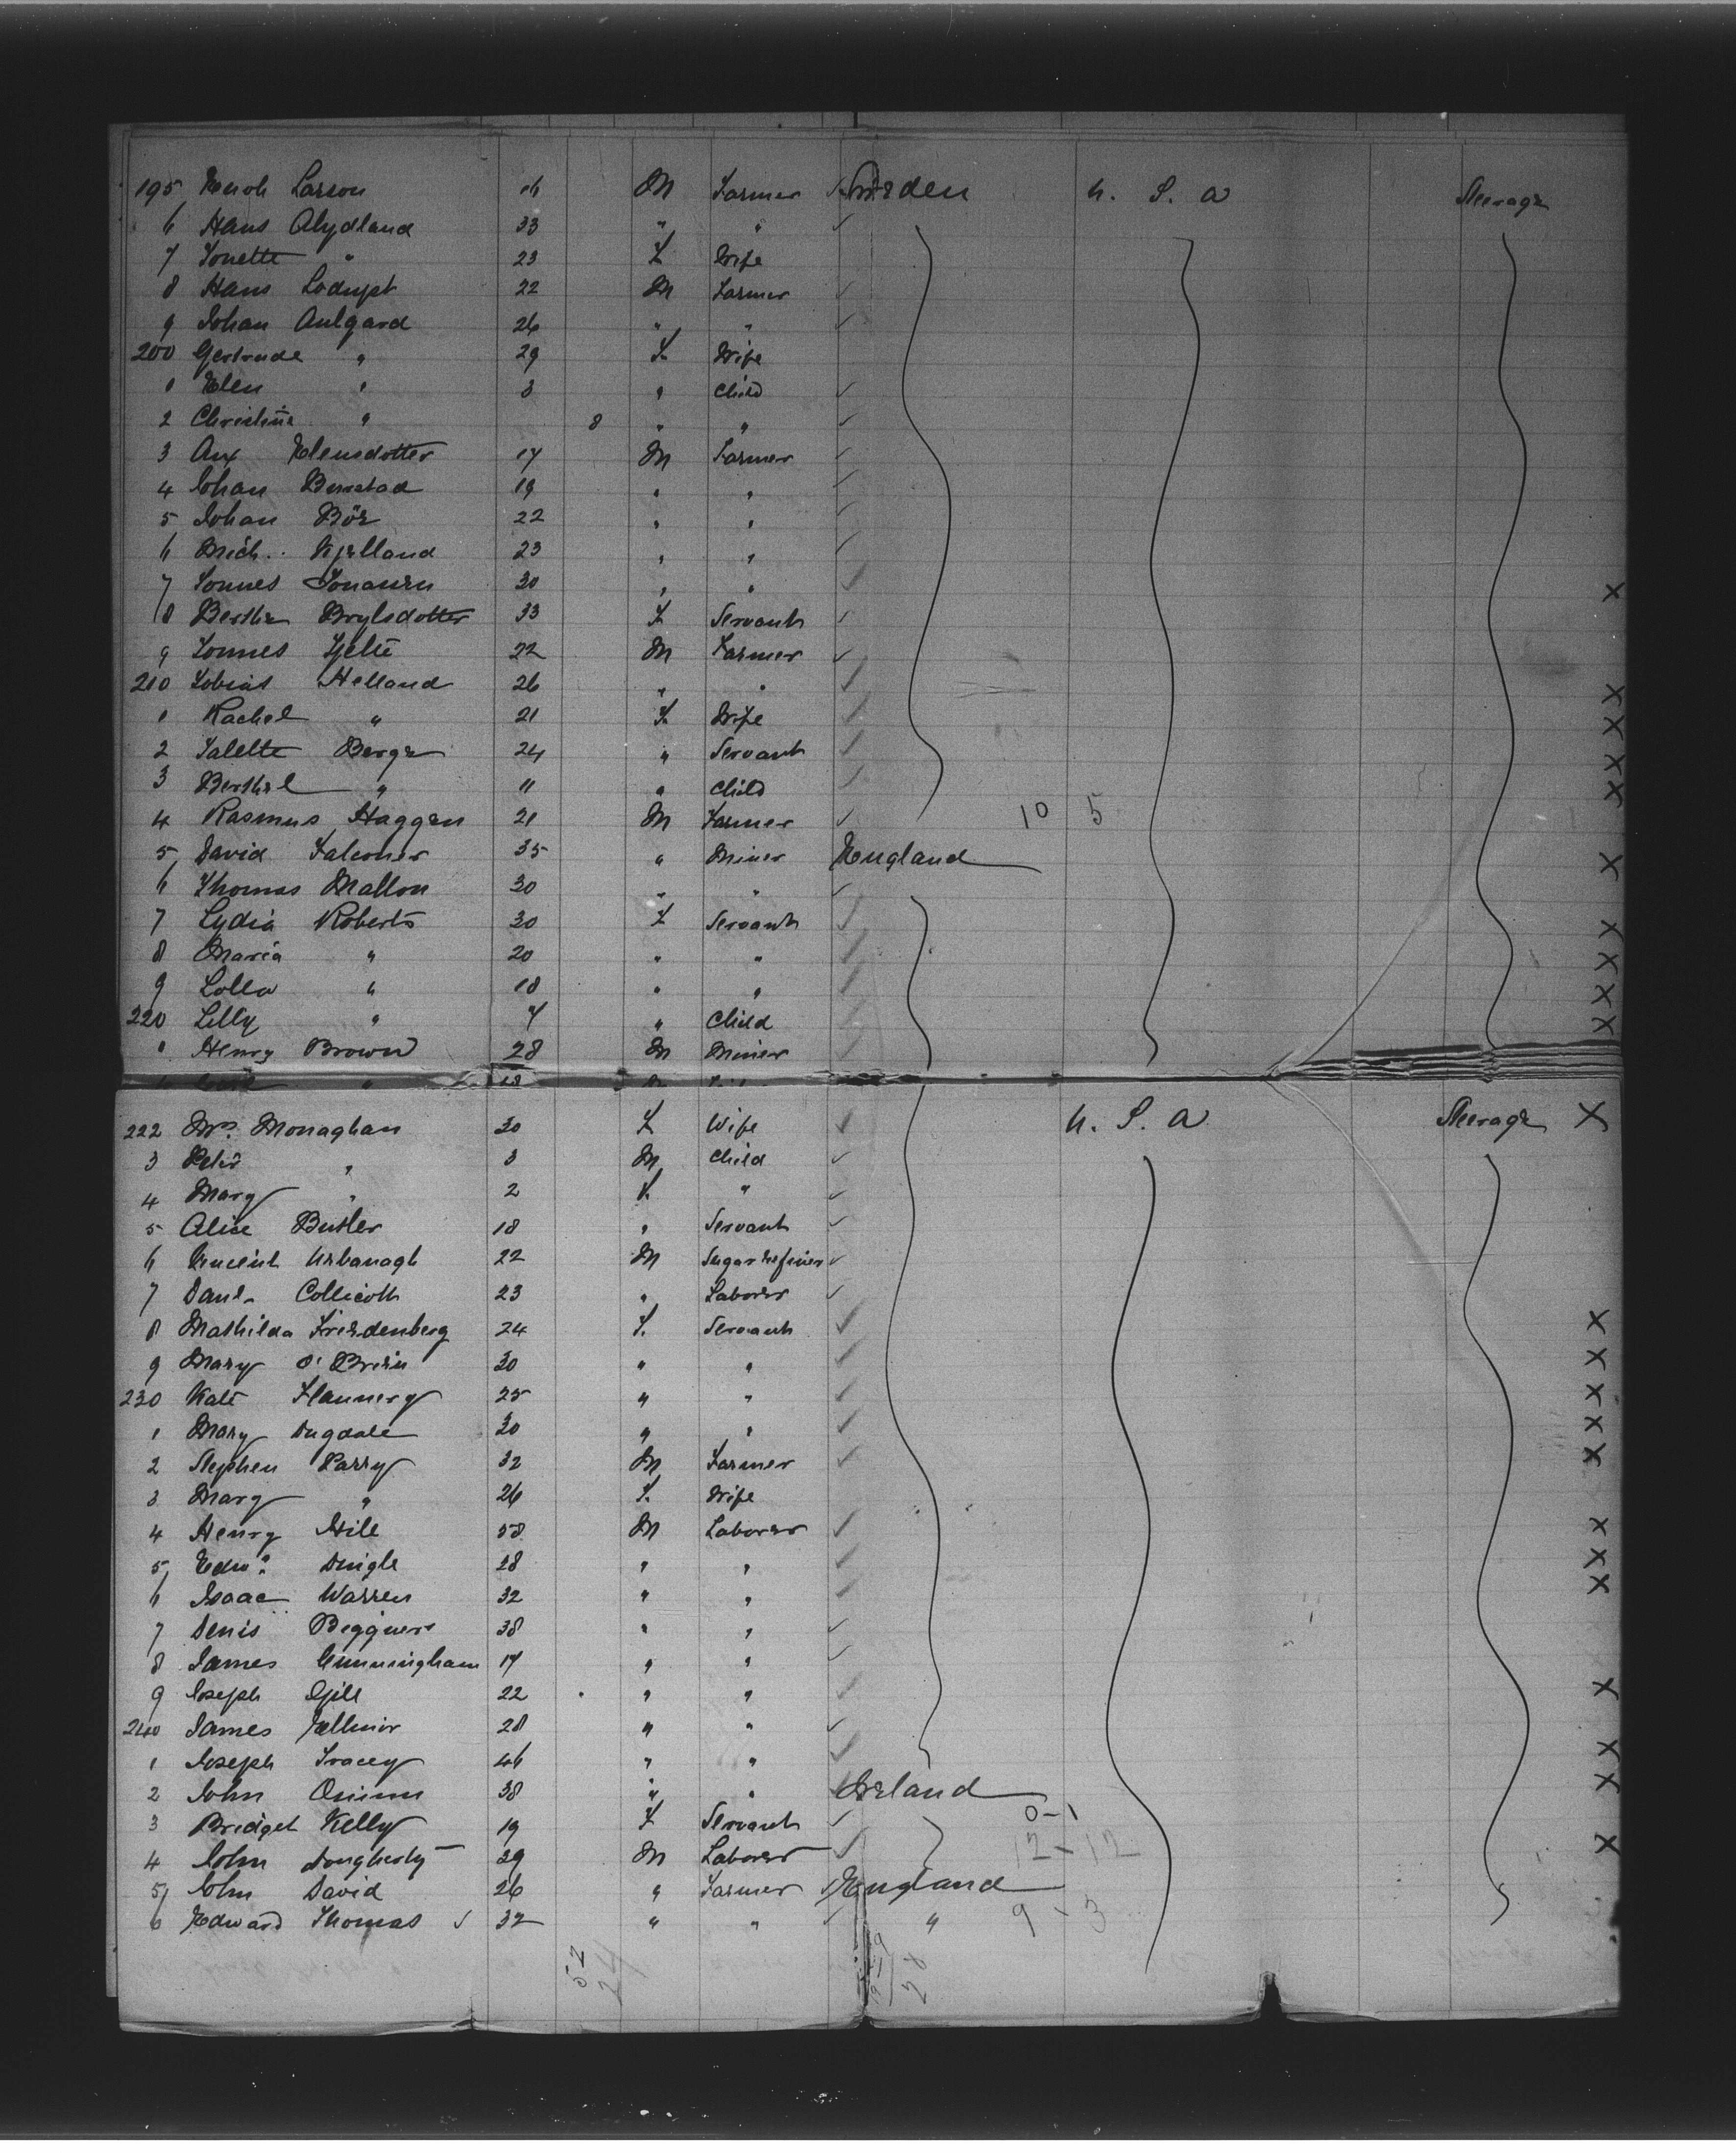 195 Enoh Larson 16 M Farmer Sweden U. S. A Steerage
6 Hans Alydland 33 " "
7 Jonette " 23 F Wife
8 Hans 22 M Farmer
9 Johan Aulgard 26 " "
200 Gertrude " 29 F. Wife
1 Elen " 3 " Child
2 Christine " 8 " "
3 Elensdotter 17 M Farmer
4 Johan 19 " "
5 Johan Böe 22 " "
6 Mich. Kjelland 23 " "
7 Tonnes Tonausen 30 " " X
8 Berthe 33 F Servant
9 Tonnes 22 M Farmer
210 Tobias Helland 26 " " X
1 Rachel " 21 F. Wife X
2 Salette Berge 24 " Servant X
3 Berthel " 11 " Child X
4 Rasmus Haggen 21 M Farmer 10 5
5 David Falconer 35 " Miner England X
6 Thomas Mallon 30 " "
7 Lydia Roberts 30 F Servant X
8 Maria " 20 " " X
9 Lolla " 18 " " X
220 Lilly " 7 " Child X
1 Henry Brown 28 M Miner
222 Mrs. Monaghan 30 F Wife U. S. A Steerage X
3 Peter " 3 M Child
4 Mary " 2 F. "
5 Alice Butler 18 " Servant
6 Vincent 22 M Sugar refiner
7 Danl. Collicott 23 " Laborer
8 Mathilda Friedenberg 24 F. Servant X
9 Mary O'Brien 30 " " X
230 Kate Flannery 25 " " X
1 Mary Dugdale 30 " " X
2 Stephen Parry 32 M Farmer X
3 Mary " 26 F. Wife
4 Henry Hill 58 M Laborer X
5 Edwd. Dingle 28 " " X
6 Isaac Warren 32 " " X
7 Denis 38 " "
8 James Cunningham 17 " "
9 Joseph Gill 22 " " X
240 James 28 " "
1 Joseph Tracey 46 " " X
2 John Quinn 38 " " Ireland X
3 Bridget Kelly 19 F Servant 0-1
4 John Dougherty 29 M Laborer 12-12 X
5 John David 26 " Farmer England
6 Edward Thomas 32 " " " 9-3
52
24
28